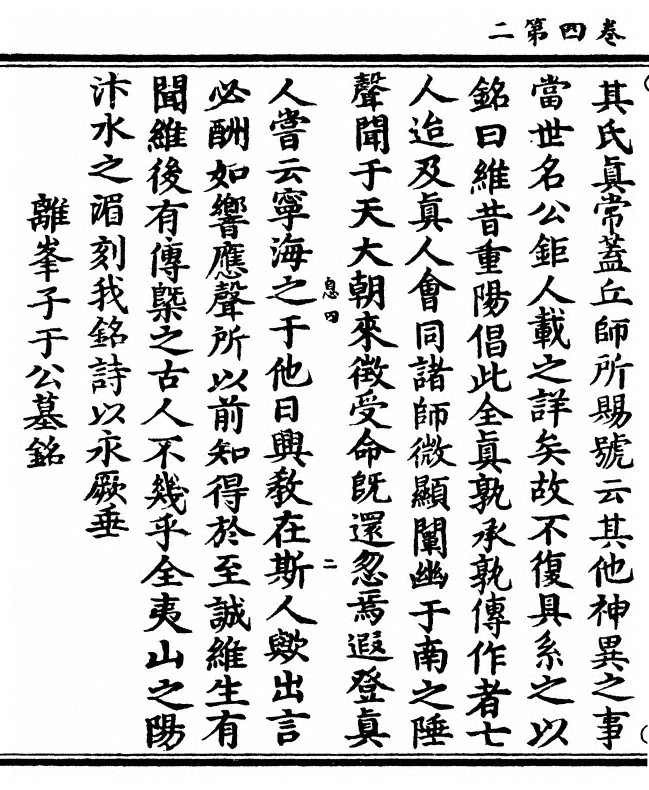 卷四第二
其氏眞常蓋丘師所賜號云其他神異之事
當世名公鉅人載之詳矣故不復具系之以
銘曰維昔重陽倡此全眞孰承孰傳作者七
人迨及眞人會同諸師微顯闡幽于南之陲
聲聞于天大朝來徵受命旣還忽焉遐登眞
息四
二
人嘗云寧海之于他日興敎在斯人歟出言
必酬如響應聲所以前知得於至誠維生有
聞維後有傳槩之古人不幾乎全夷山之陽
汴水之湄刻我銘詩以永厥垂
離峯子于公墓銘